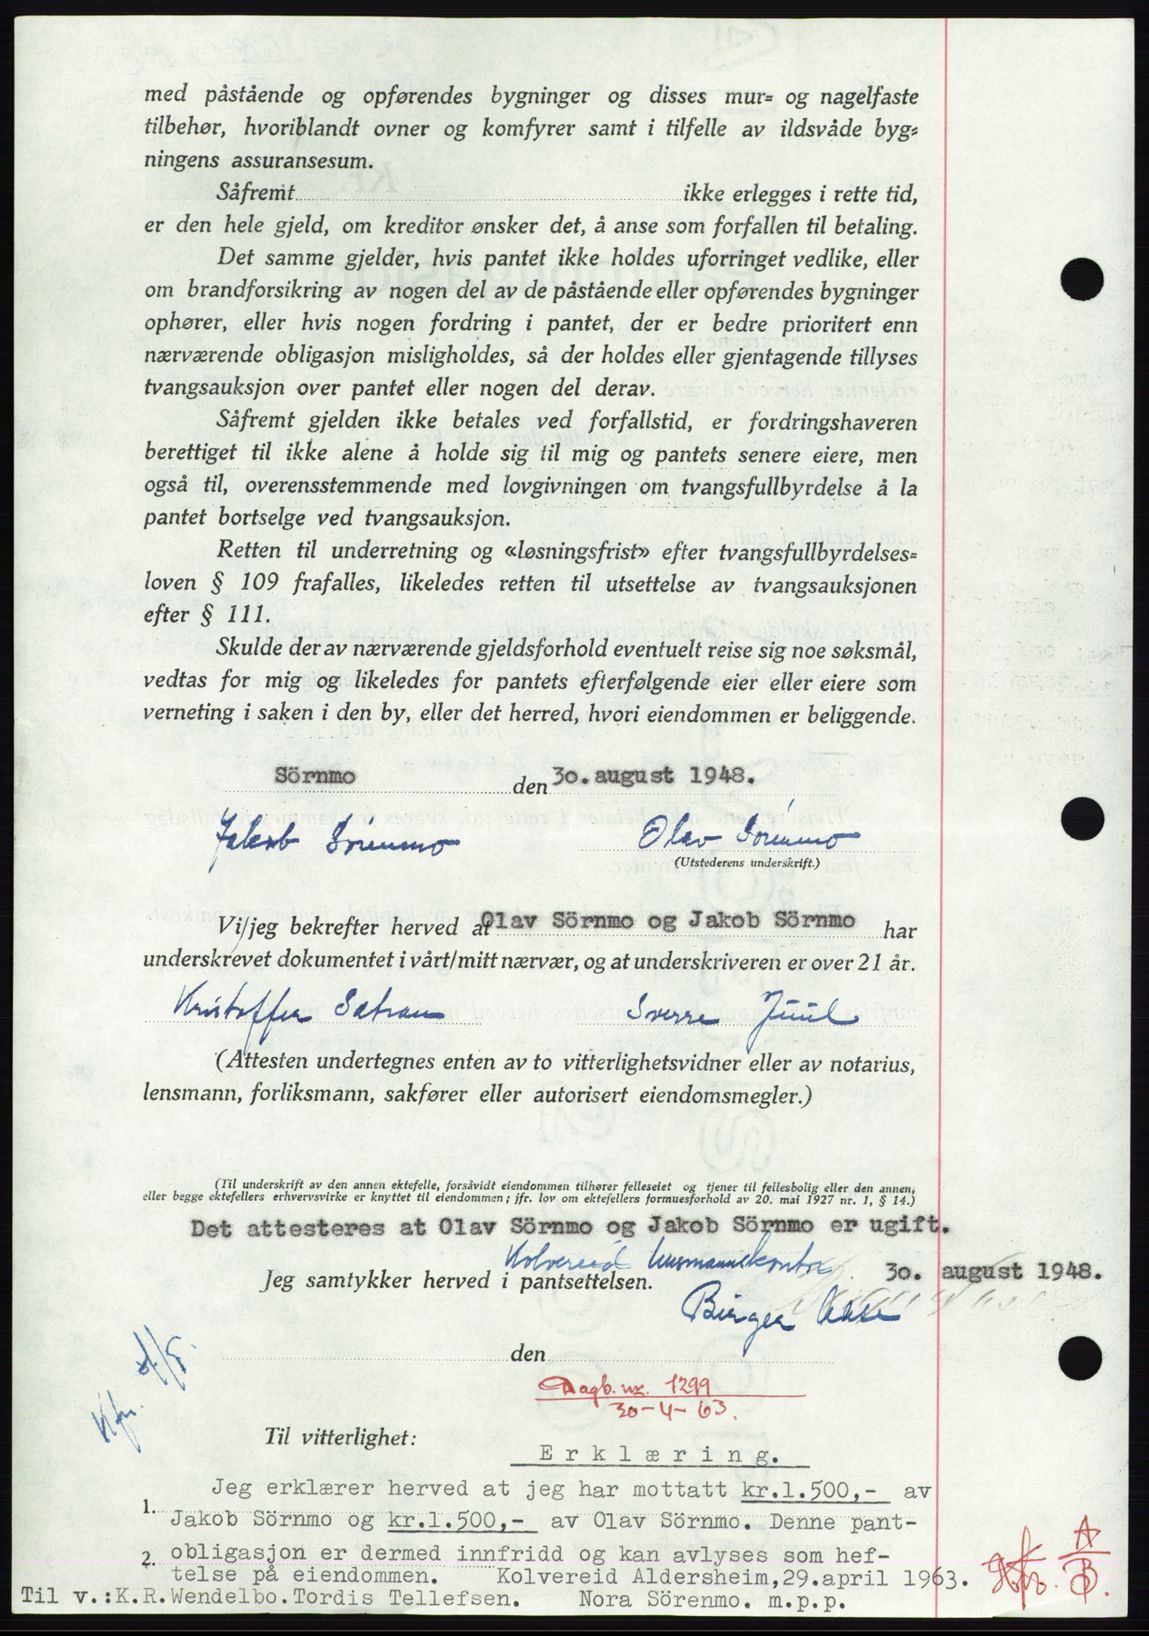 med påstående og opførendes bygninger og disses mur= og nagelfaste
tilbehør, hvoriblandt ovner og komfyrer samt i tilfelle av ildsvåde byg=
ningens assuransesum.
Såfremt ikke erlegges i rette tid,
er den hele gjeld, om kreditor ønsker det, å anse som forfallen til betaling.
Det samme gjelder, hvis pantet ikke holdes uforringet vedlike, eller
om brandforsikring av nogen del av de påstående eller opførendes bygninger
ophører, eller hvis nogen fordring i pantet, der er bedre prioritert enn
nærværende obligasjon misligholdes, så der holdes eller gjentagende tillyses
tvangsauksjon over pantet eller nogen del derav.
Såfremt gjelden ikke betales ved forfallstid, er fordringshaveren
berettiget til ikke alene å holde sig til mig og pantets senere eiere, men
også til, overensstemmende med lovgivningen om tvangsfullbyrdelse å la
pantet bortselge ved tvangsauksjon.
Retten til underretning og «løsningsfrist» efter tvangsfullbyrdelses=
loven § 109 frafalles, likeledes retten til utsettelse av tvangsauksjonen
efter § 111.
Skulde der av nærværende gjeldsforhold eventuelt reise sig noe søksmål,
vedtas for mig og likeledes for pantets efterfølgende eier eller eiere som
verneting i saken i den by, eller det herred, hvori eiendommen er beliggende.
Sörnmo den 30. august 1948.
Jakob Sörenmo Olav Sörenmo
(Utstederens underskrift.)
Vi/jeg bekrefter herved at Olav Sörnmo og Jakob Sörnmo har
underskrevet dokumentet i vårt/mitt nærvær, og at underskriveren er over 21 år.
Kristoffer Satran Sverre Juul
(Attesten undertegnes enten av to vitterlighetsvidner eller av notarius,
lensmann, forliksmann, sakfører eller autorisert eiendomsmegler.)
(Til underskrift av den annen ektefelle, forsåvidt eiendommen tilhører felleseiet og tjener til fellesbolig eller den annen,
eller begge ektefellers erhvervsvirke er knyttet til eiendommen; jfr. lov om ektefellers formuesforhold av 20. mai 1927 nr. 1, § 14.)
Det attesteres at Olav Sörnmo og Jakob Sörnmo er ugift.
Kolvereid lensmannskontor 30. august 1948.
Jeg samtykker herved i pantsettelsen.
Birger
den
Dagb. nr. 1299
30-4-63.
Til vitterlighet:
Erklæring.
Jeg erklærer herved at jeg har mottatt kr.1.500,- av
1. Jakob Sörnmo og kr.1.500,- av Olav Sörnmo. Denne pant-
2. obligasjon er dermed innfridd og kan avlyses som hef-
telse på eiendommen. Kolvereid Aldersheim,29.april 1963.
Til v.:K.R.Wendelbo.Tordis Tellefsen. Nora Sörenmo. m.p.p.
A
B.